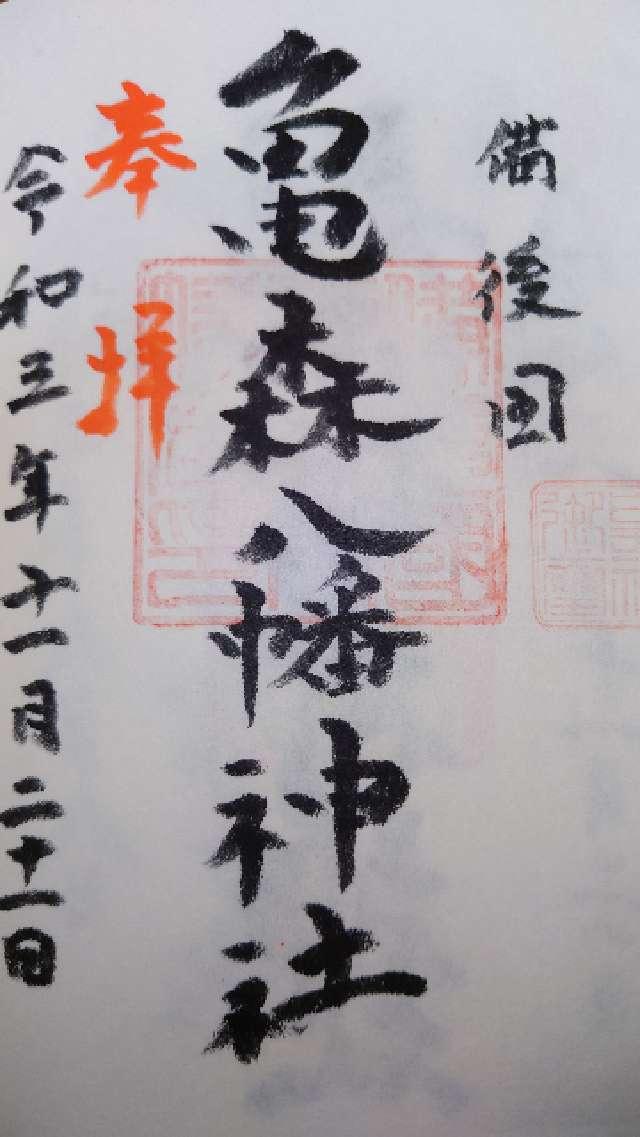 備後国
亀森八幡神社
奉拝
令和三年十一月二十一日